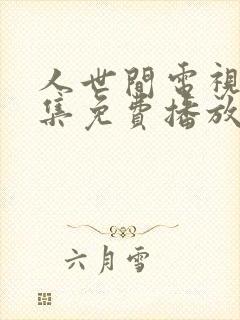 人世間電視
集免費播放
六月雪